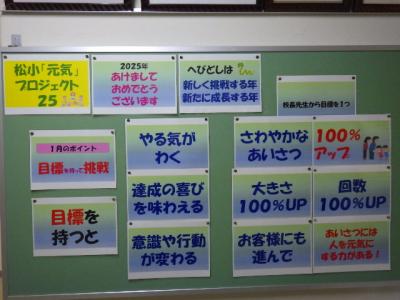 松小「元気」
プロジェクト
25
2025年
あけまして
おめでとう
ございます
へびどしは
新しく挑戦する年
新たに成長する年
校長先生から目標を1つ
1月のポイント
目標を持って挑戦
目標を
持つと
やる気が
わく
達成の喜び
を味わえる
意識や行動
が変わる
さわやかな
あいさつ
100%
アップ
大きさ
100%UP
回数
100%UP
お客様にも
進んで
あいさつには
人を元気に
する力がある!